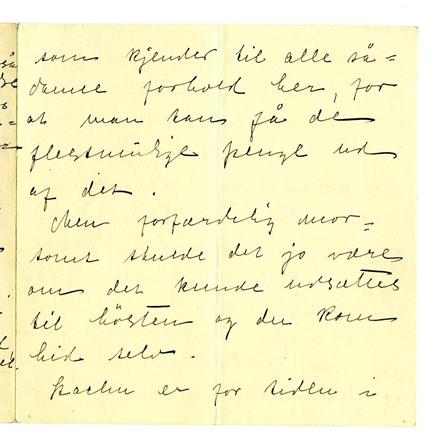 som kjender til alle så=
danne forhold her, for
at man kan få de
flestmulige penge ud
af det.
Men forfærdelig mor=
somt skulde det jo være
om det kunde udsættes
til hösten og du kom
hid selv.
er for tiden i